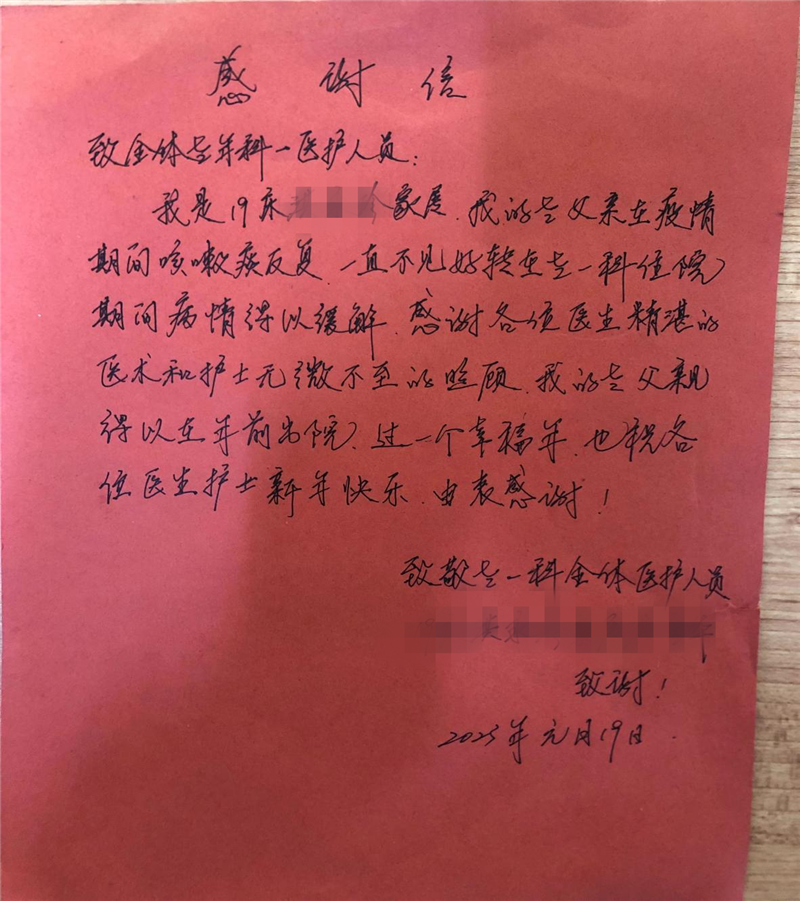 感谢信
致全体老年科一医护人员:
我是19床家属.我的老父亲在疫情
期间咳嗽痰反复.一直不见好转在老一科住院
期间病情得以缓解.感谢各位医生精湛的
医术和护士无微不至的照顾.我的老父亲
得以在年前出院.过一个幸福年.也祝各
位医生护士新年快乐.由衷感谢!
致敬老一科全体医护人员
致谢!
2023年元月19日.